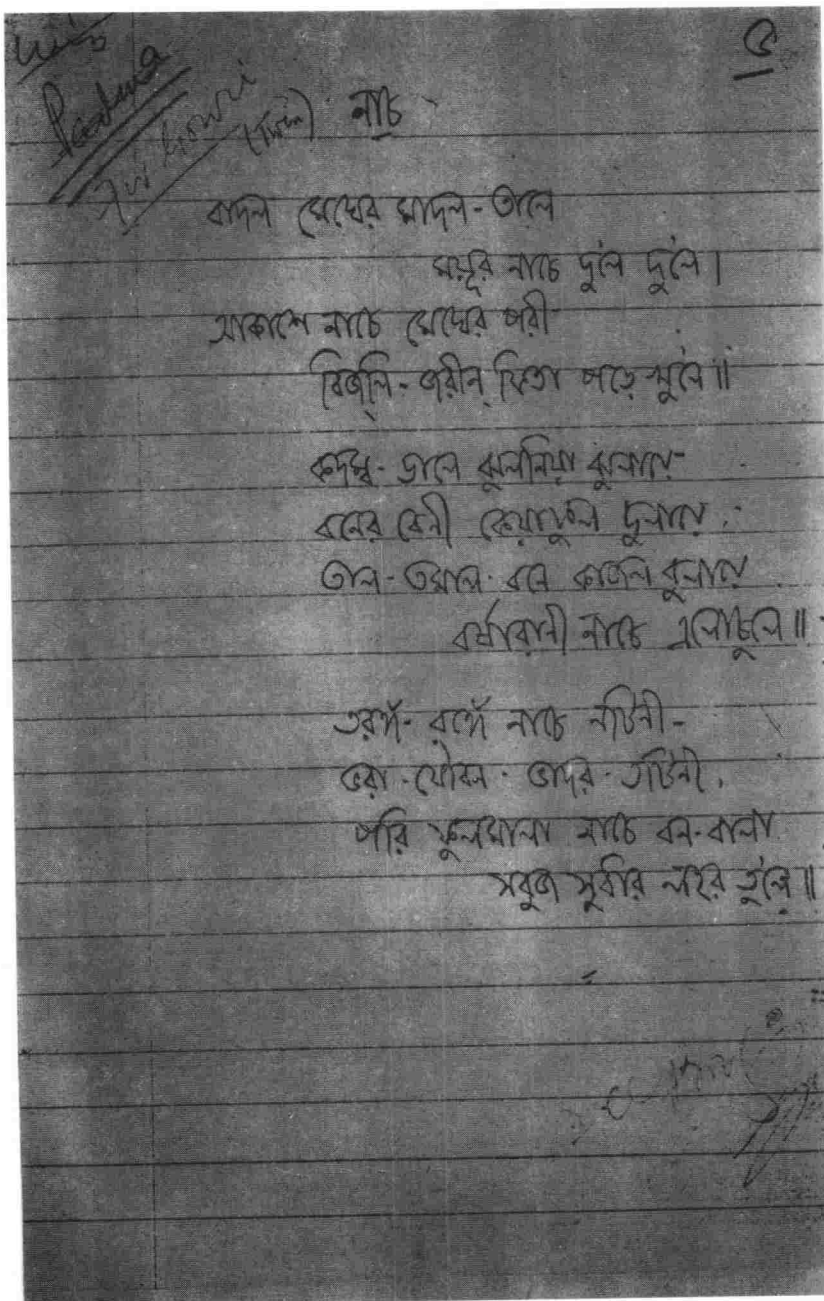 ৫
Padma
নাচ
বাদল মেঘের মাদল-তালে
ময়ূর নাচে দুলে দুলে।
আকাশে নাচে মেঘের পরী
বিজলি-জরীন্ ফিতা পড়ে খুলে॥
কদম্ব-ডালে ঝুলনিয়া ঝুলায়ে
বনের বেণী কেয়াফুল দুলায়ে
তাল-তমাল-বনে কাজল বুলায়ে
বর্ষারানী নাচে এলোচুলে॥
তরঙ্গ-রঙ্গে নাচে নটিনী-
ভরা-যৌবন-ভাদর-তটিনী,
পরি ফুলমালা নাচে বন-বালা
সবুজ সুধার লহর তুলে॥